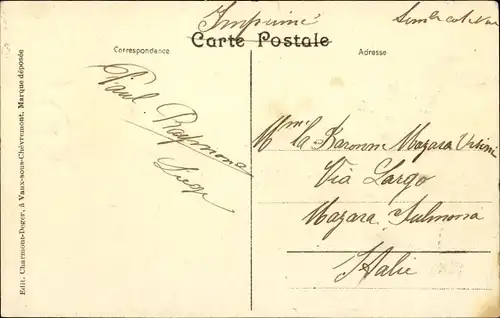 Imprimé
Carte Postale
Correspondance
Adresse
Paul Raymond
Liège
Mme la Baronne Mazara
Via Largo
Mazara Sulmona
Italie
Edit. Charmont-Deger, à Vaux-sous-Chèvremont. Marque déposée